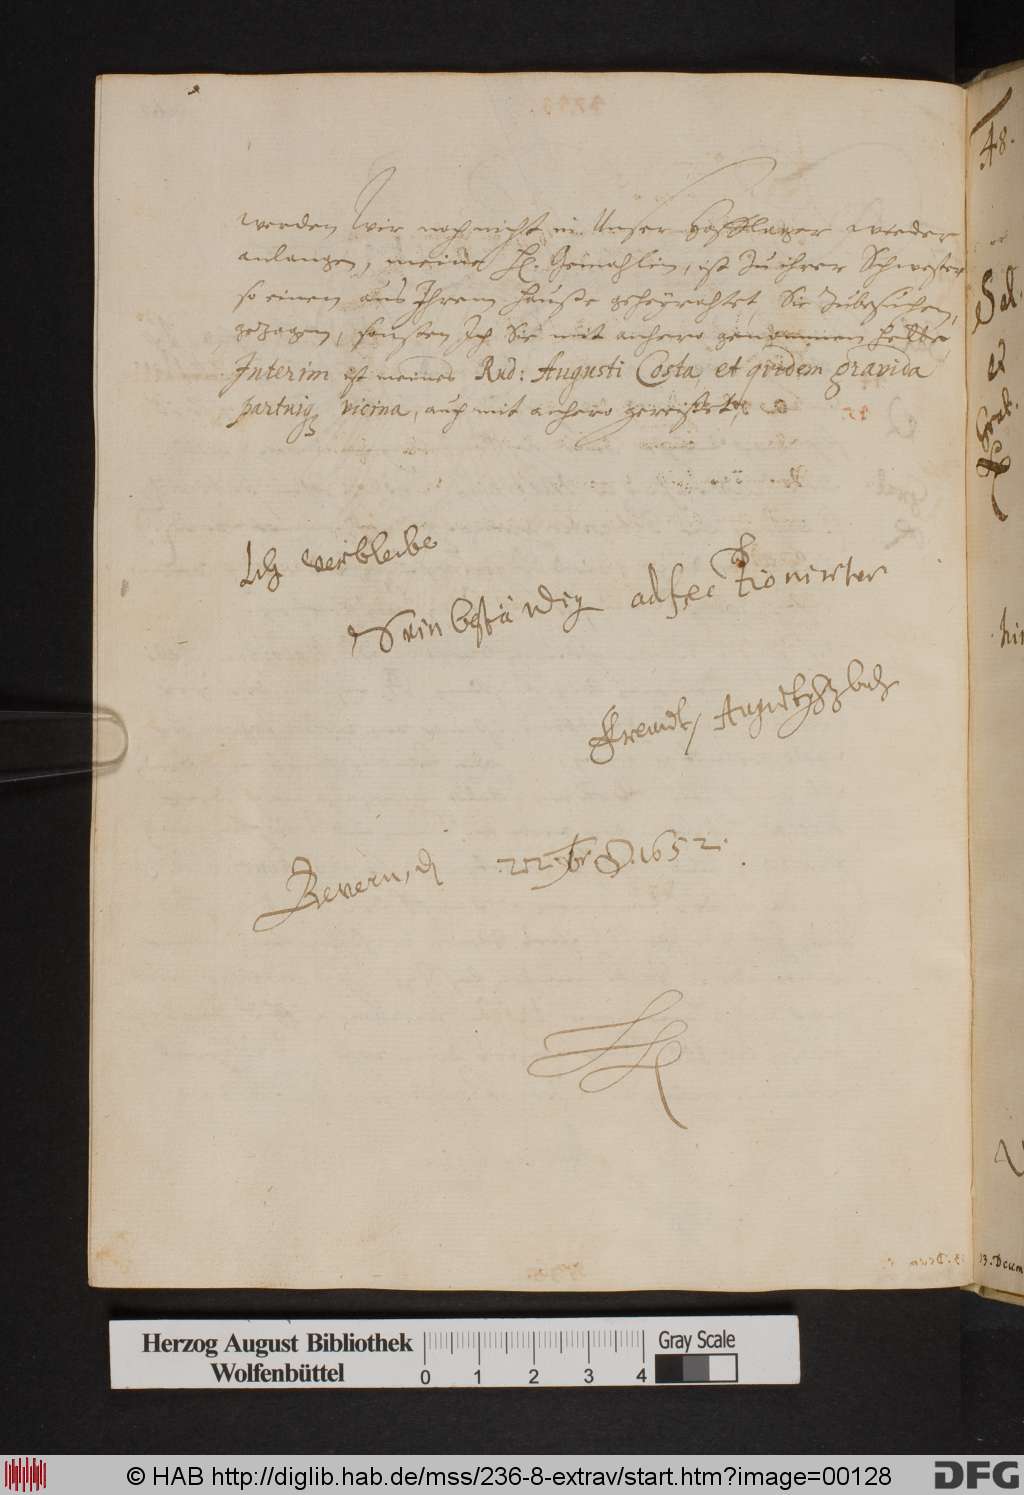 werden Wir noch nicht in Unser Hofflager wieder
anlangen, meine H. Gemahlin, ist zu ihrer Schwester
so einen aus Ihrem Hauße geheyrahtet, Sie zubesuchen,
gezogen, sonsten Ich Sie mit anhero genommen hette,
Interim ist meines Rud: Augusti Costa, et quidem gravida
partuiq3 vicina, auch mit anhero gereißet,
Ich verbleibe
Sein beständig adfectionirter
Freundt, Augustus HzbuL
Bevern, d 22. Xbr 1652.
48.
Sal
et
Grat.
13. Decem
Herzog August Bibliothek
Wolfenbüttel
0 1 2 3 4
Gray Scale
© HAB http://diglib.hab.de/mss/236-8-extrav/start.htm?image=00128
DFG